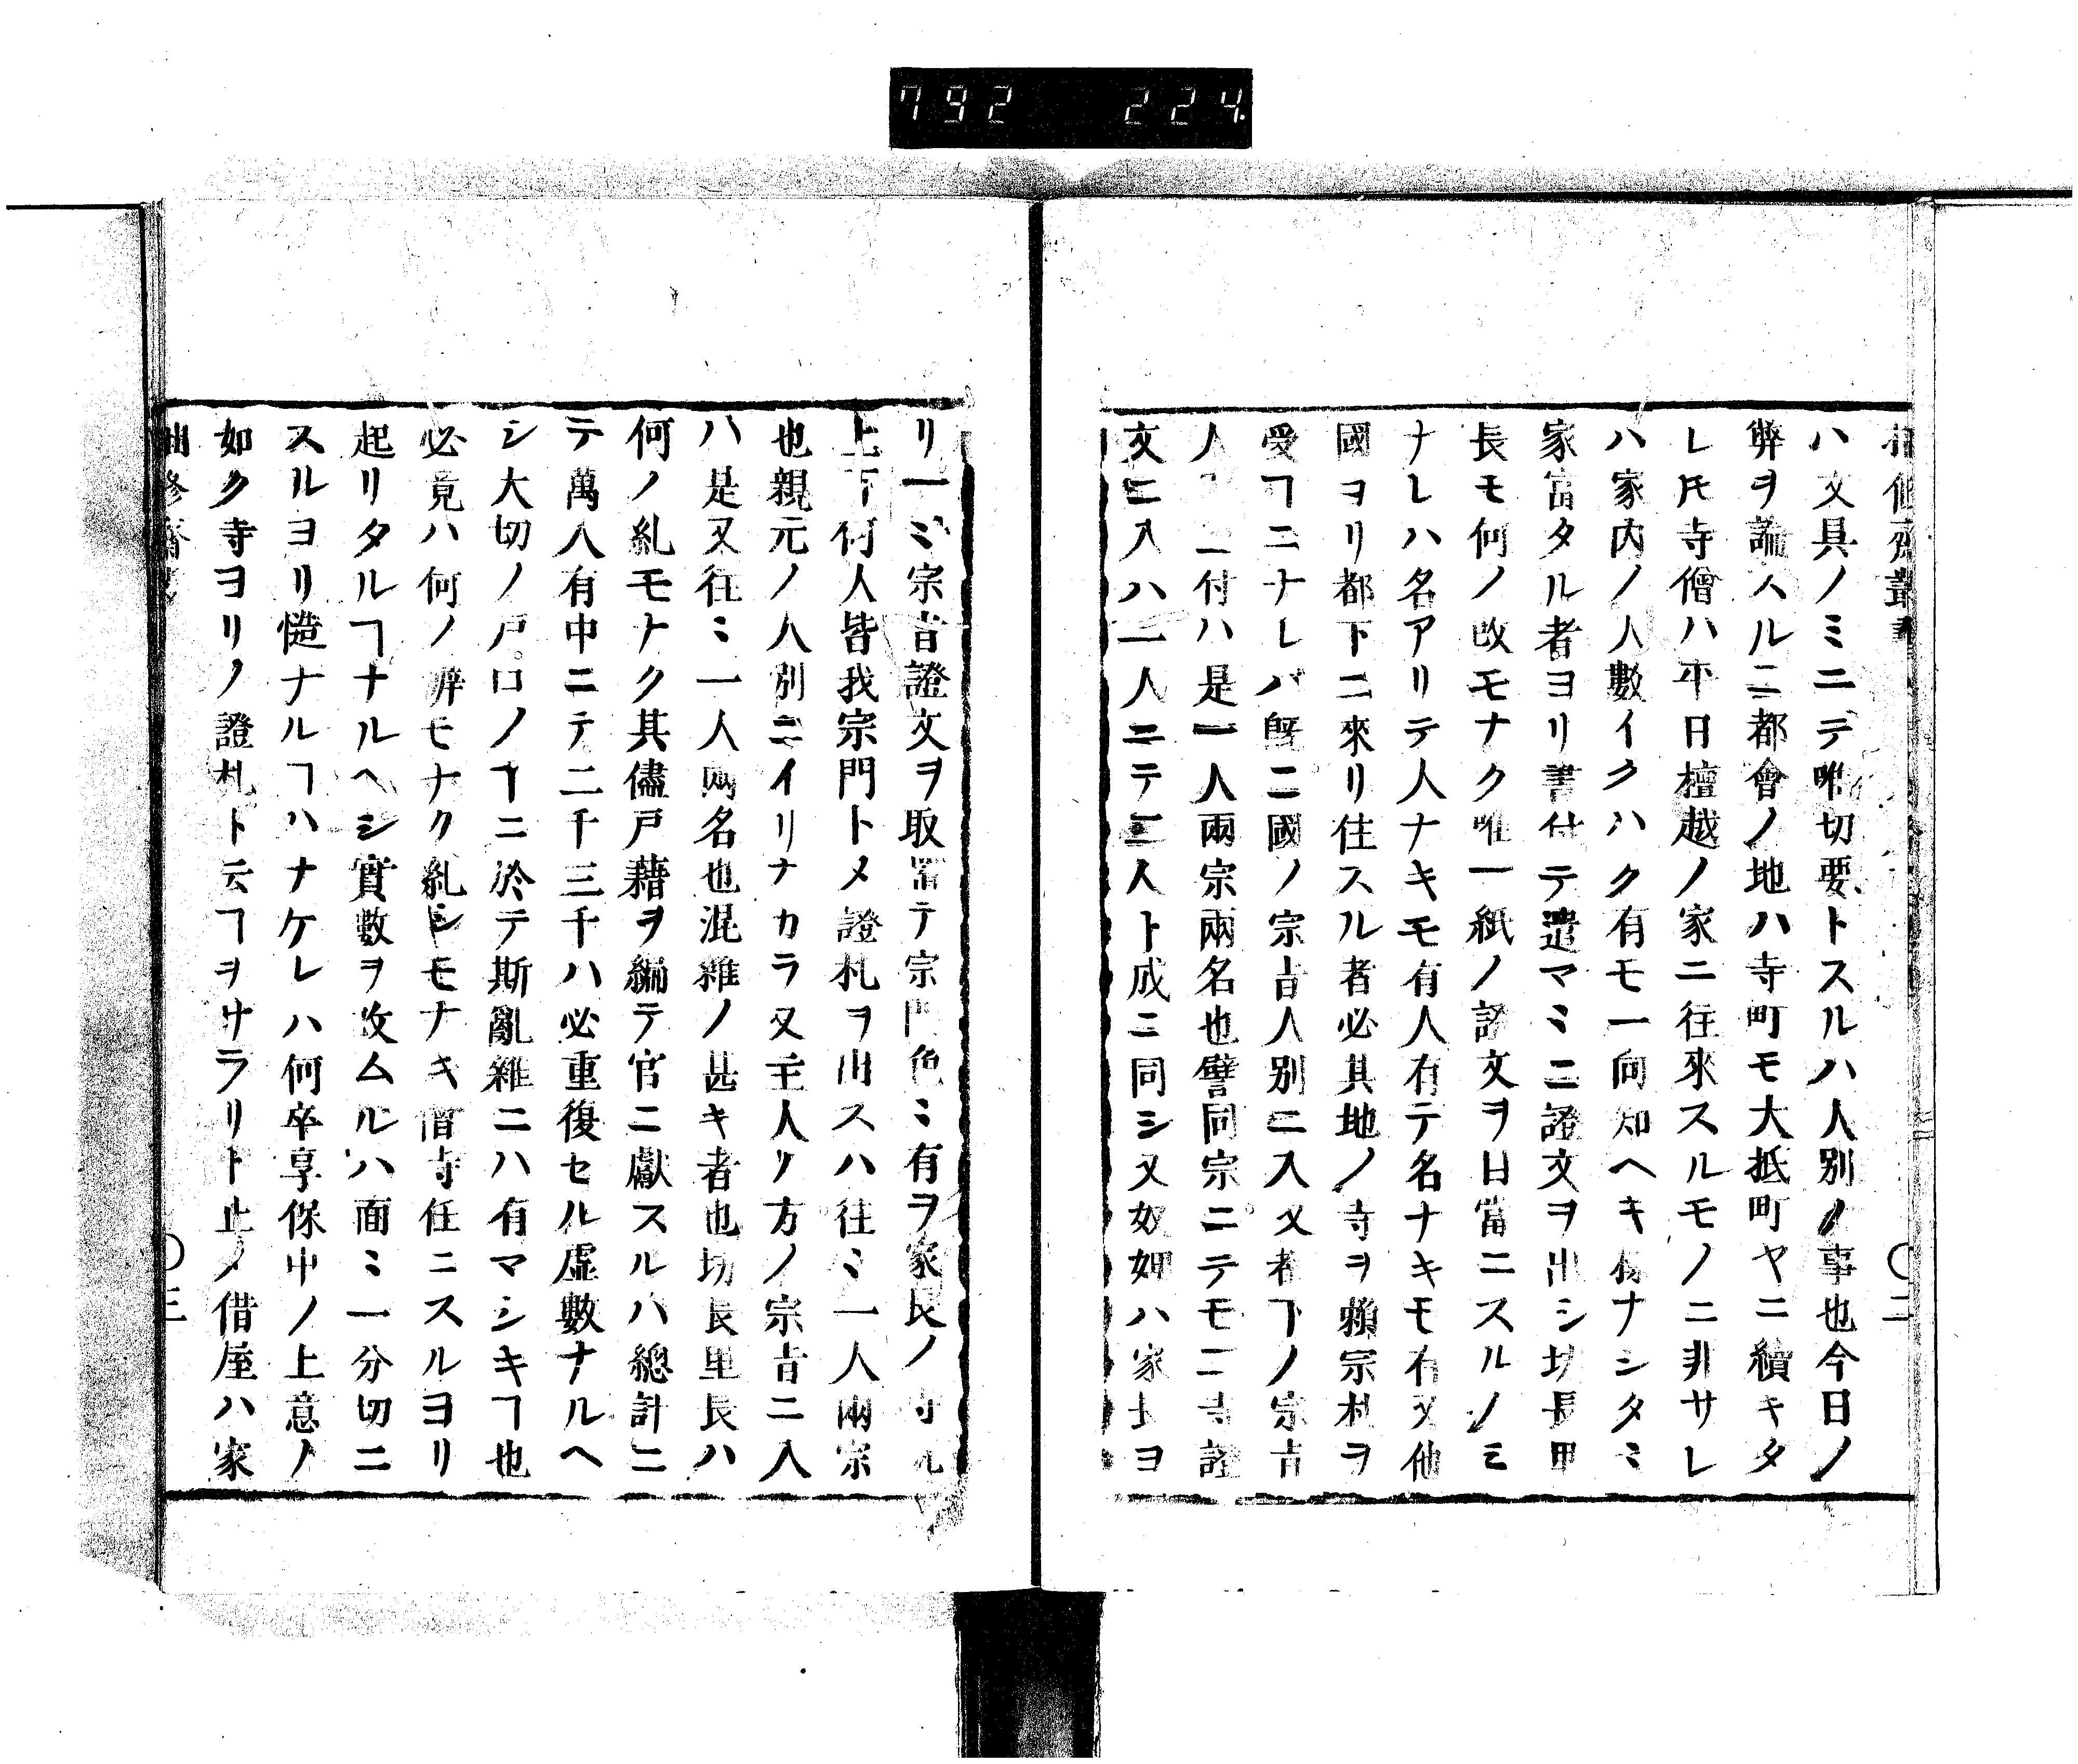 792 224
ハ文具ノミニテ唯切要トスルハ人別ノ事也今日ノ
弊ヲ論スルニ都會ノ地ハ寺町モ大抵町ヤニ續キタ
レ𪜈寺僧ハ平日檀越ノ家ニ往來スルモノニ非サレ
ハ家内ノ人數イクハク有モ一向知ヘキ様ナシタミ
家富タル者ヨリ書付テ遣マミニ證文ヲ出シ坊長里
長モ何ノ改モナク唯一紙ノ證文ヲ目當ニスルノミ
ナレハ名アリテ人ナキモ有人有テ名ナキモ有又他
國ヨリ都下ニ來リ住スル者必其地ノ寺ヲ頼宗札ヲ
受ヿニナレバ既ニ國ノ宗旨人別ニ入又都下ノ宗旨
人 ニ付ハ是一人兩宗兩名也譬同宗ニテモ二寺證
文ニ入ハ一人ニテ二人ト成ニ同シ又奴婢ハ家長ヨ
〇二
リ一ミ宗旨證文ヲ取置テ宗門色ミ有ヲ家長ノ寺ニ
上下何人皆我宗門トメ證札ヲ出スハ往ミ一人兩宗
也親元ノ人別ニイリナカラ又主人ケ方ノ宗旨ニ入
ハ是又往ミ一人兩名也混雜ノ甚キ者也坊長里長ハ
何ノ糺モナク其儘戸藉ヲ編テ官ニ獻スルハ總計ニ
テ萬人有中ニテ二千三千ハ必重復セル虚數ナルヘ
シ大切ノ戸口ノヿニ於テ斯亂雜ニハ有マシキヿ也
必竟ハ何ノ辨モナク糺シモナキ僧寺任ニスルヨリ
起リタルヿナルヘシ實數ヲ改ムルハ面ミ一分切ニ
スルヨリ慥ナルヿハナケレハ何卒享保中ノ上意ノ
如ク寺ヨリノ證札ト云ヿヲサラリト止ノ借屋ハ家
〇三